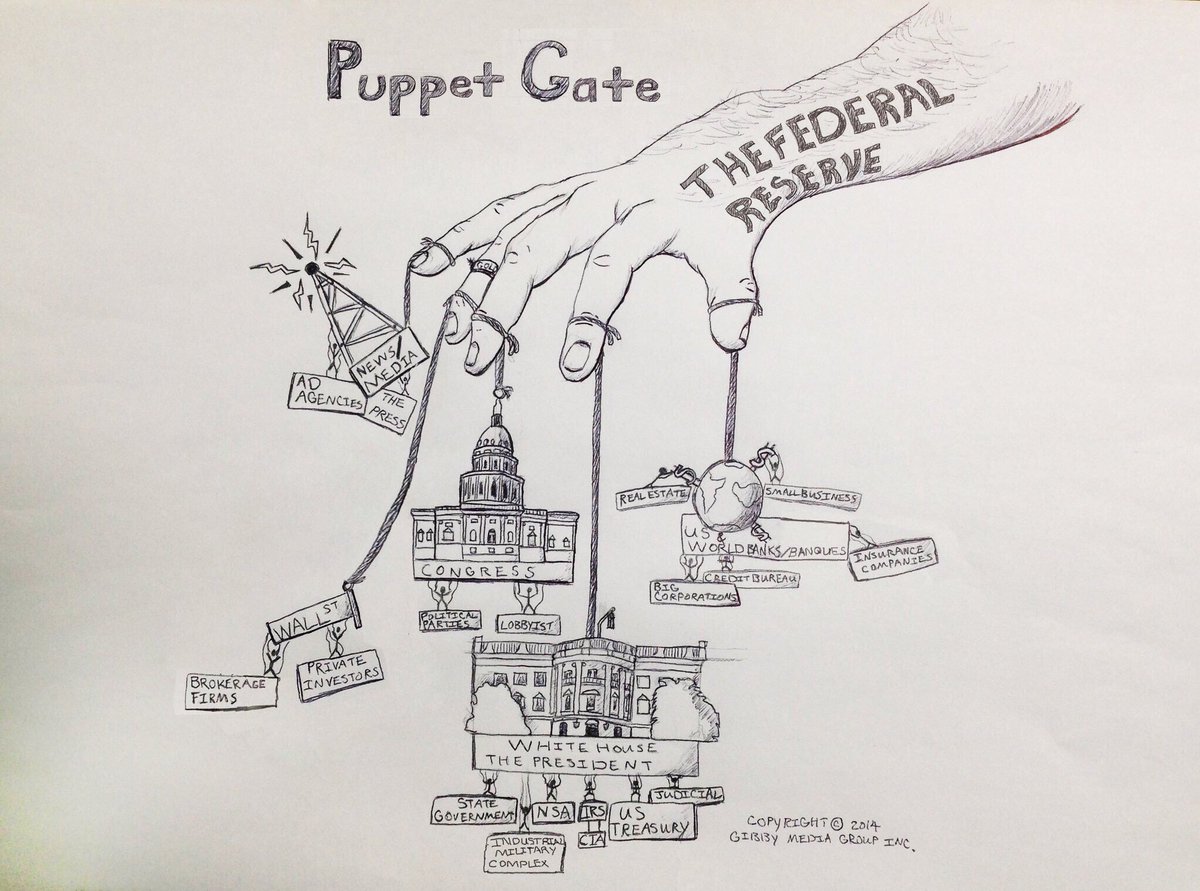 Puppet Gate
THE FEDERAL
RESERVE
GOLD
NEWS/
MEDIA
AD
AGENCIES
THE
PRESS
REAL ESTATE
SMALL BUSINESS
US &
WORLD BANKS/BANQUES
INSURANCE
COMPANIES
CREDIT BUREAU
BIG
CORPORATIONS
CONGRESS
POLITICAL
PARTIES
LOBBYIST
WALL ST
BROKERAGE
FIRMS
PRIVATE
INVESTORS
WHITE HOUSE
THE PRESIDENT
STATE
GOVERNMENT
NSA
IRS
CIA
US
TREASURY
JUDICIAL
INDUSTRIAL
MILITARY
COMPLEX
COPYRIGHT © 2014
GIBBY MEDIA GROUP INC.